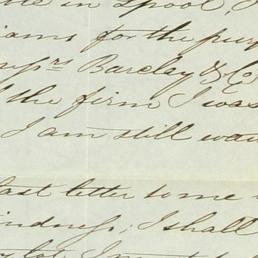 in Spool,
for the pur
Barclay & Co
the firm I was
I am still wai
last letter to me
indness; I shall